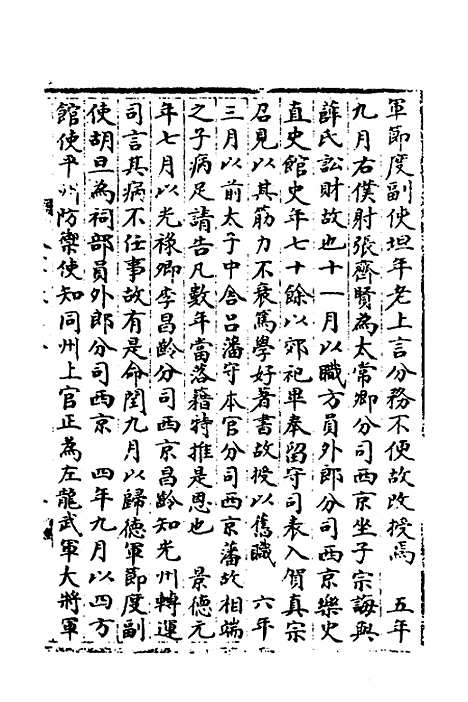 軍節度副使坦年老上言分務不便故改授焉　五年
九月右僕射張齊賢為太常卿分司西京坐子宗誨與
薛氏訟財故也十一月以職方員外郎分司西京樂史
直史館史年七十餘以郊祀畢奉留守司表入賀真宗
召見以其筋力不衰篤學好著書故授以舊職　六年
三月以前太子中舍呂藩守本官分司西京藩故相端
之子病足請告凡數年當落籍特推是恩也　景德元
年七月以光祿卿李昌齡分司西京昌齡知光州轉運
司言其病不任事故有是命閏九月以歸德軍節度副
使胡旦為祠部員外郎分司西京　四年九月以四方
館使平州防禦使知同州上官正為左龍武軍大將軍